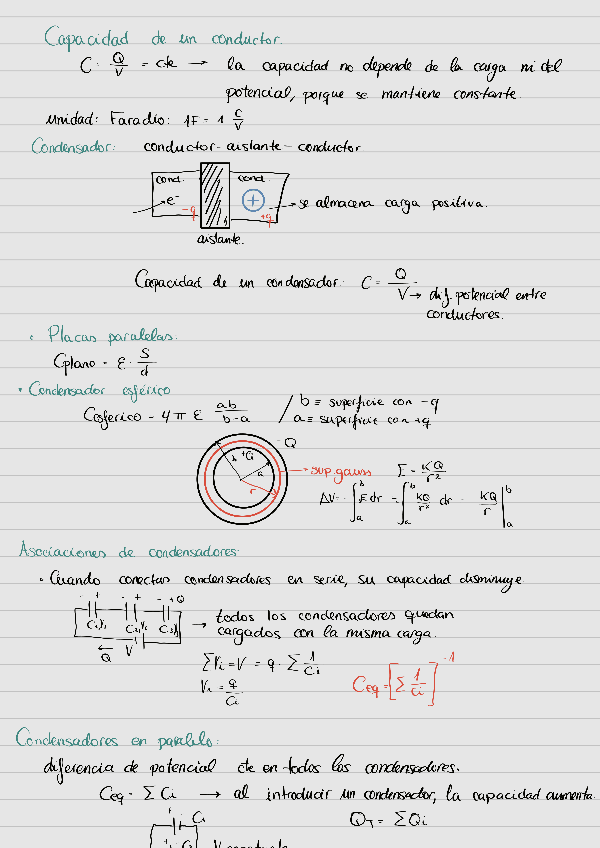 Capacidad de un conductor.
C = Q/V = cte → la capacidad no depende de la carga ni del
potencial, porque se mantiene constante.
Unidad: Faradio: 1F = 1 C/V
Condensador: conductor - aislante - conductor
cond. cond.
e⁻ -q + +q → se almacena carga positiva.
aislante.
Capacidad de un condensador: C = Q/V → dif. potencial entre
conductores.
• Placas paralelas.
Cplano = ε · S/d
• Condensador esférico
Cesferico = 4π ε ab/b-a / b ≡ superficie con -q
a ≡ superficie con +q
-Q
b +Q a r → sup. gauss E = KQ/r²
ΔV = ∫ₐᵇ E dr = ∫ₐᵇ KQ/r² dr = KQ/r |ₐᵇ
Asociaciones de condensadores:
• Cuando conectas condensadores en serie, su capacidad disminuye
- + - + - +Q
C₁V₁ C₂V₂ C₃V₃ → todos los condensadores quedan
Q V cargados con la misma carga.
ΣVi = V = q · Σ 1/Ci
Vi = q/Ci Ceq = [Σ 1/Ci]⁻¹
Condensadores en paralelo:
diferencia de potencial cte en todos los condensadores.
Ceq = ΣCi → al introducir un condensador, la capacidad aumenta.
+ C₁ QT = ΣQi